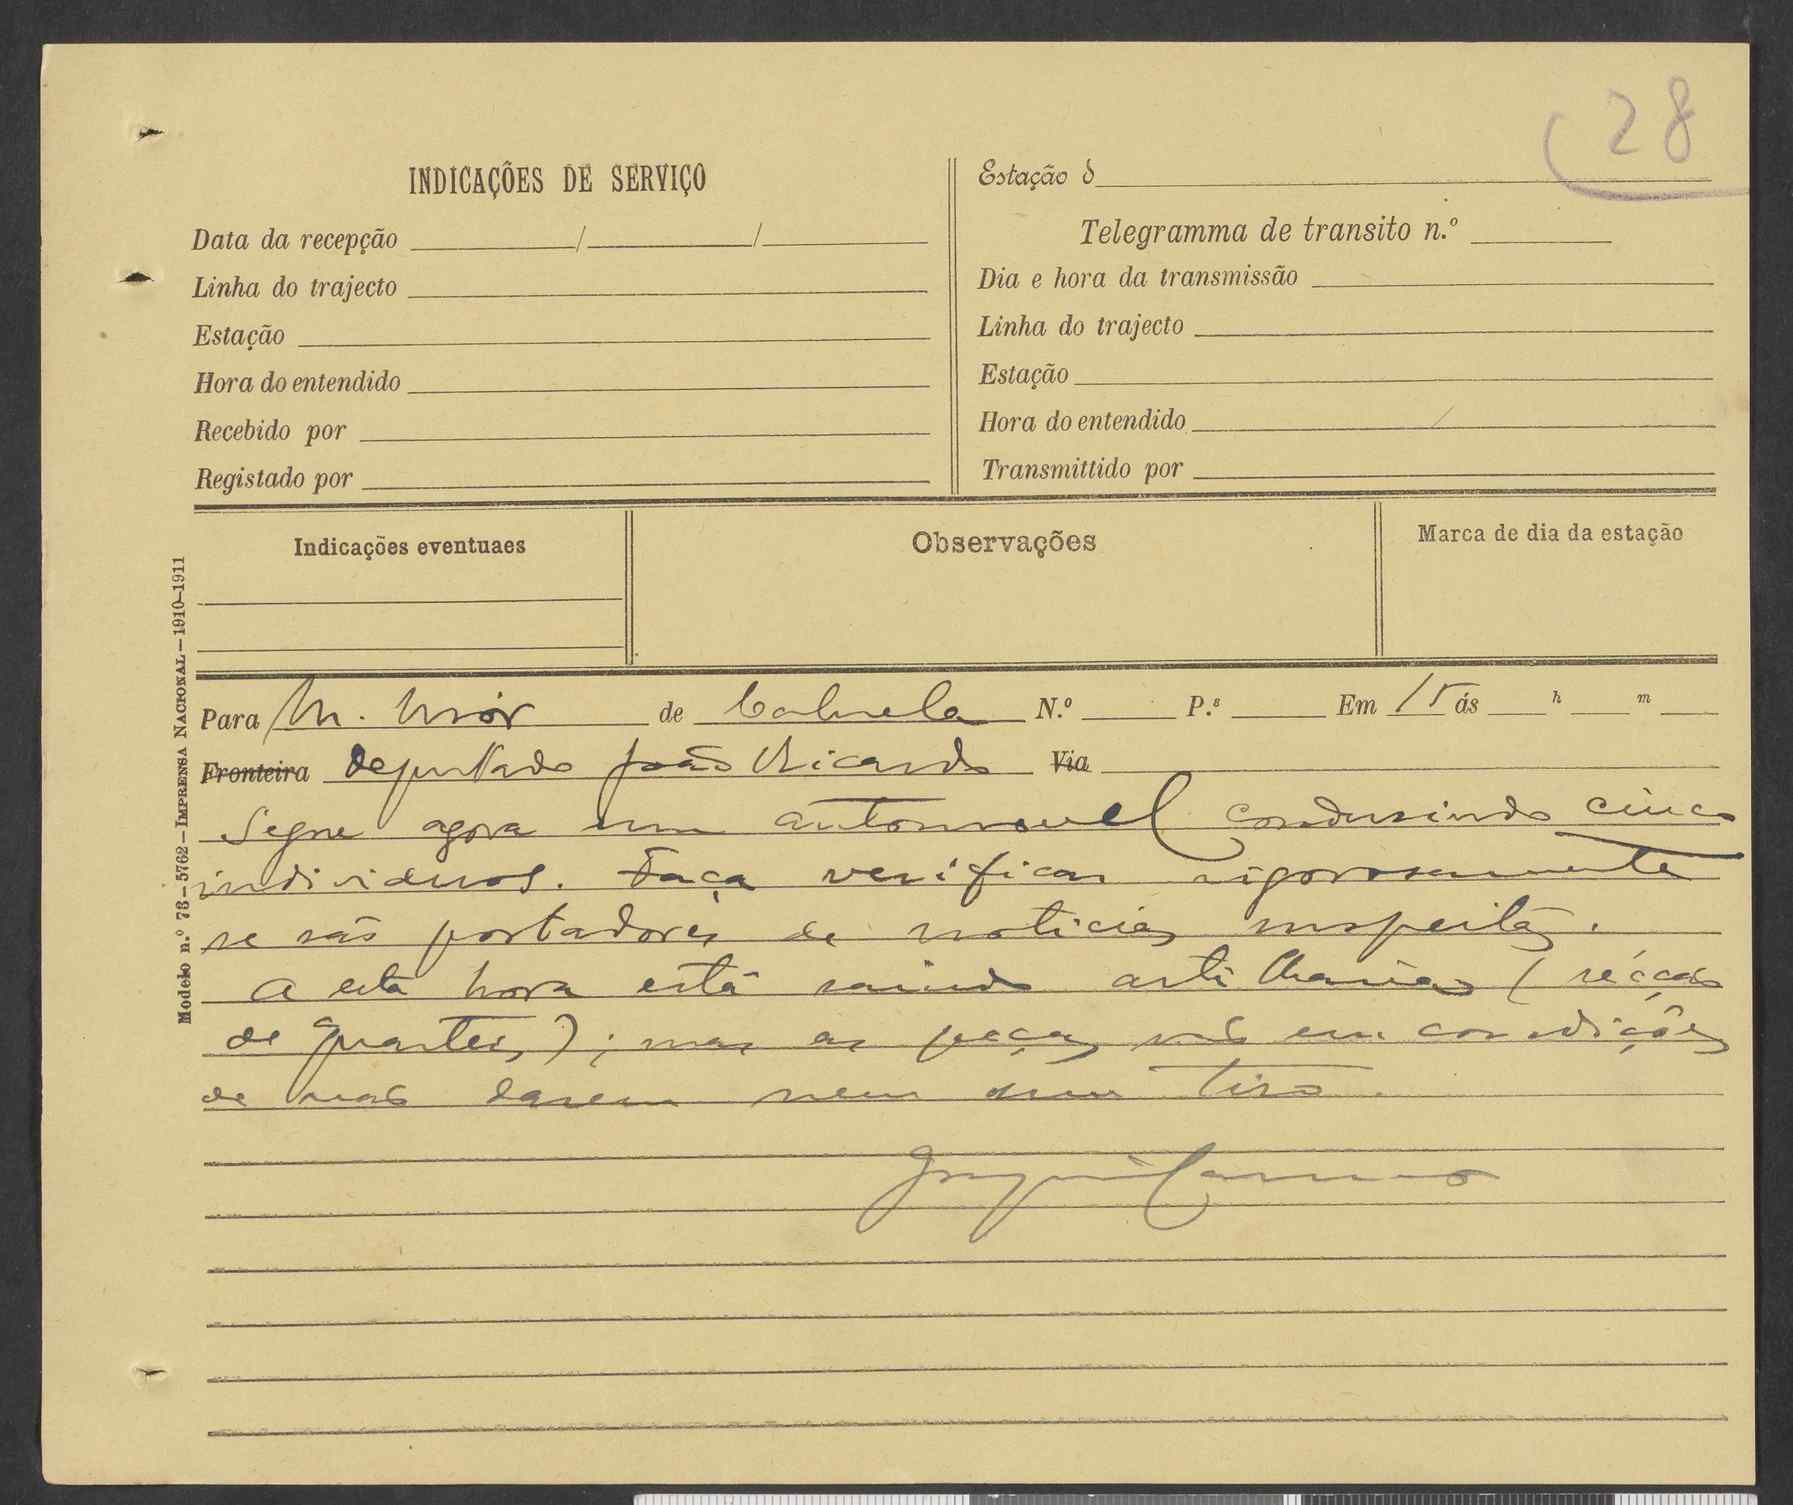 28
INDICAÇÕES DE SERVIÇO
Data da recepção / /
Linha do trajecto
Estação
Hora do entendido
Recebido por
Registado por
Estação d
Telegramma de transito n.º
Dia e hora da transmissão
Linha do trajecto
Estação
Hora do entendido
Transmittido por
Indicações eventuaes
Observações
Marca de dia da estação
Modelo n.º 73—5762—IMPRENSA NACIONAL—1910-1911
Para M. Mór de N.º P.s Em 15 ás h m
Fronteira Deputado João Ricardo Via
Segue agora um automovel condusindo cinco
individuos. Faça verificar rigorosamente
se são portadores de noticias suspeitas.
A esta hora está saindo artilharia (
de Queluz); mas as peças vão em condições
de não darem nem um tiro.